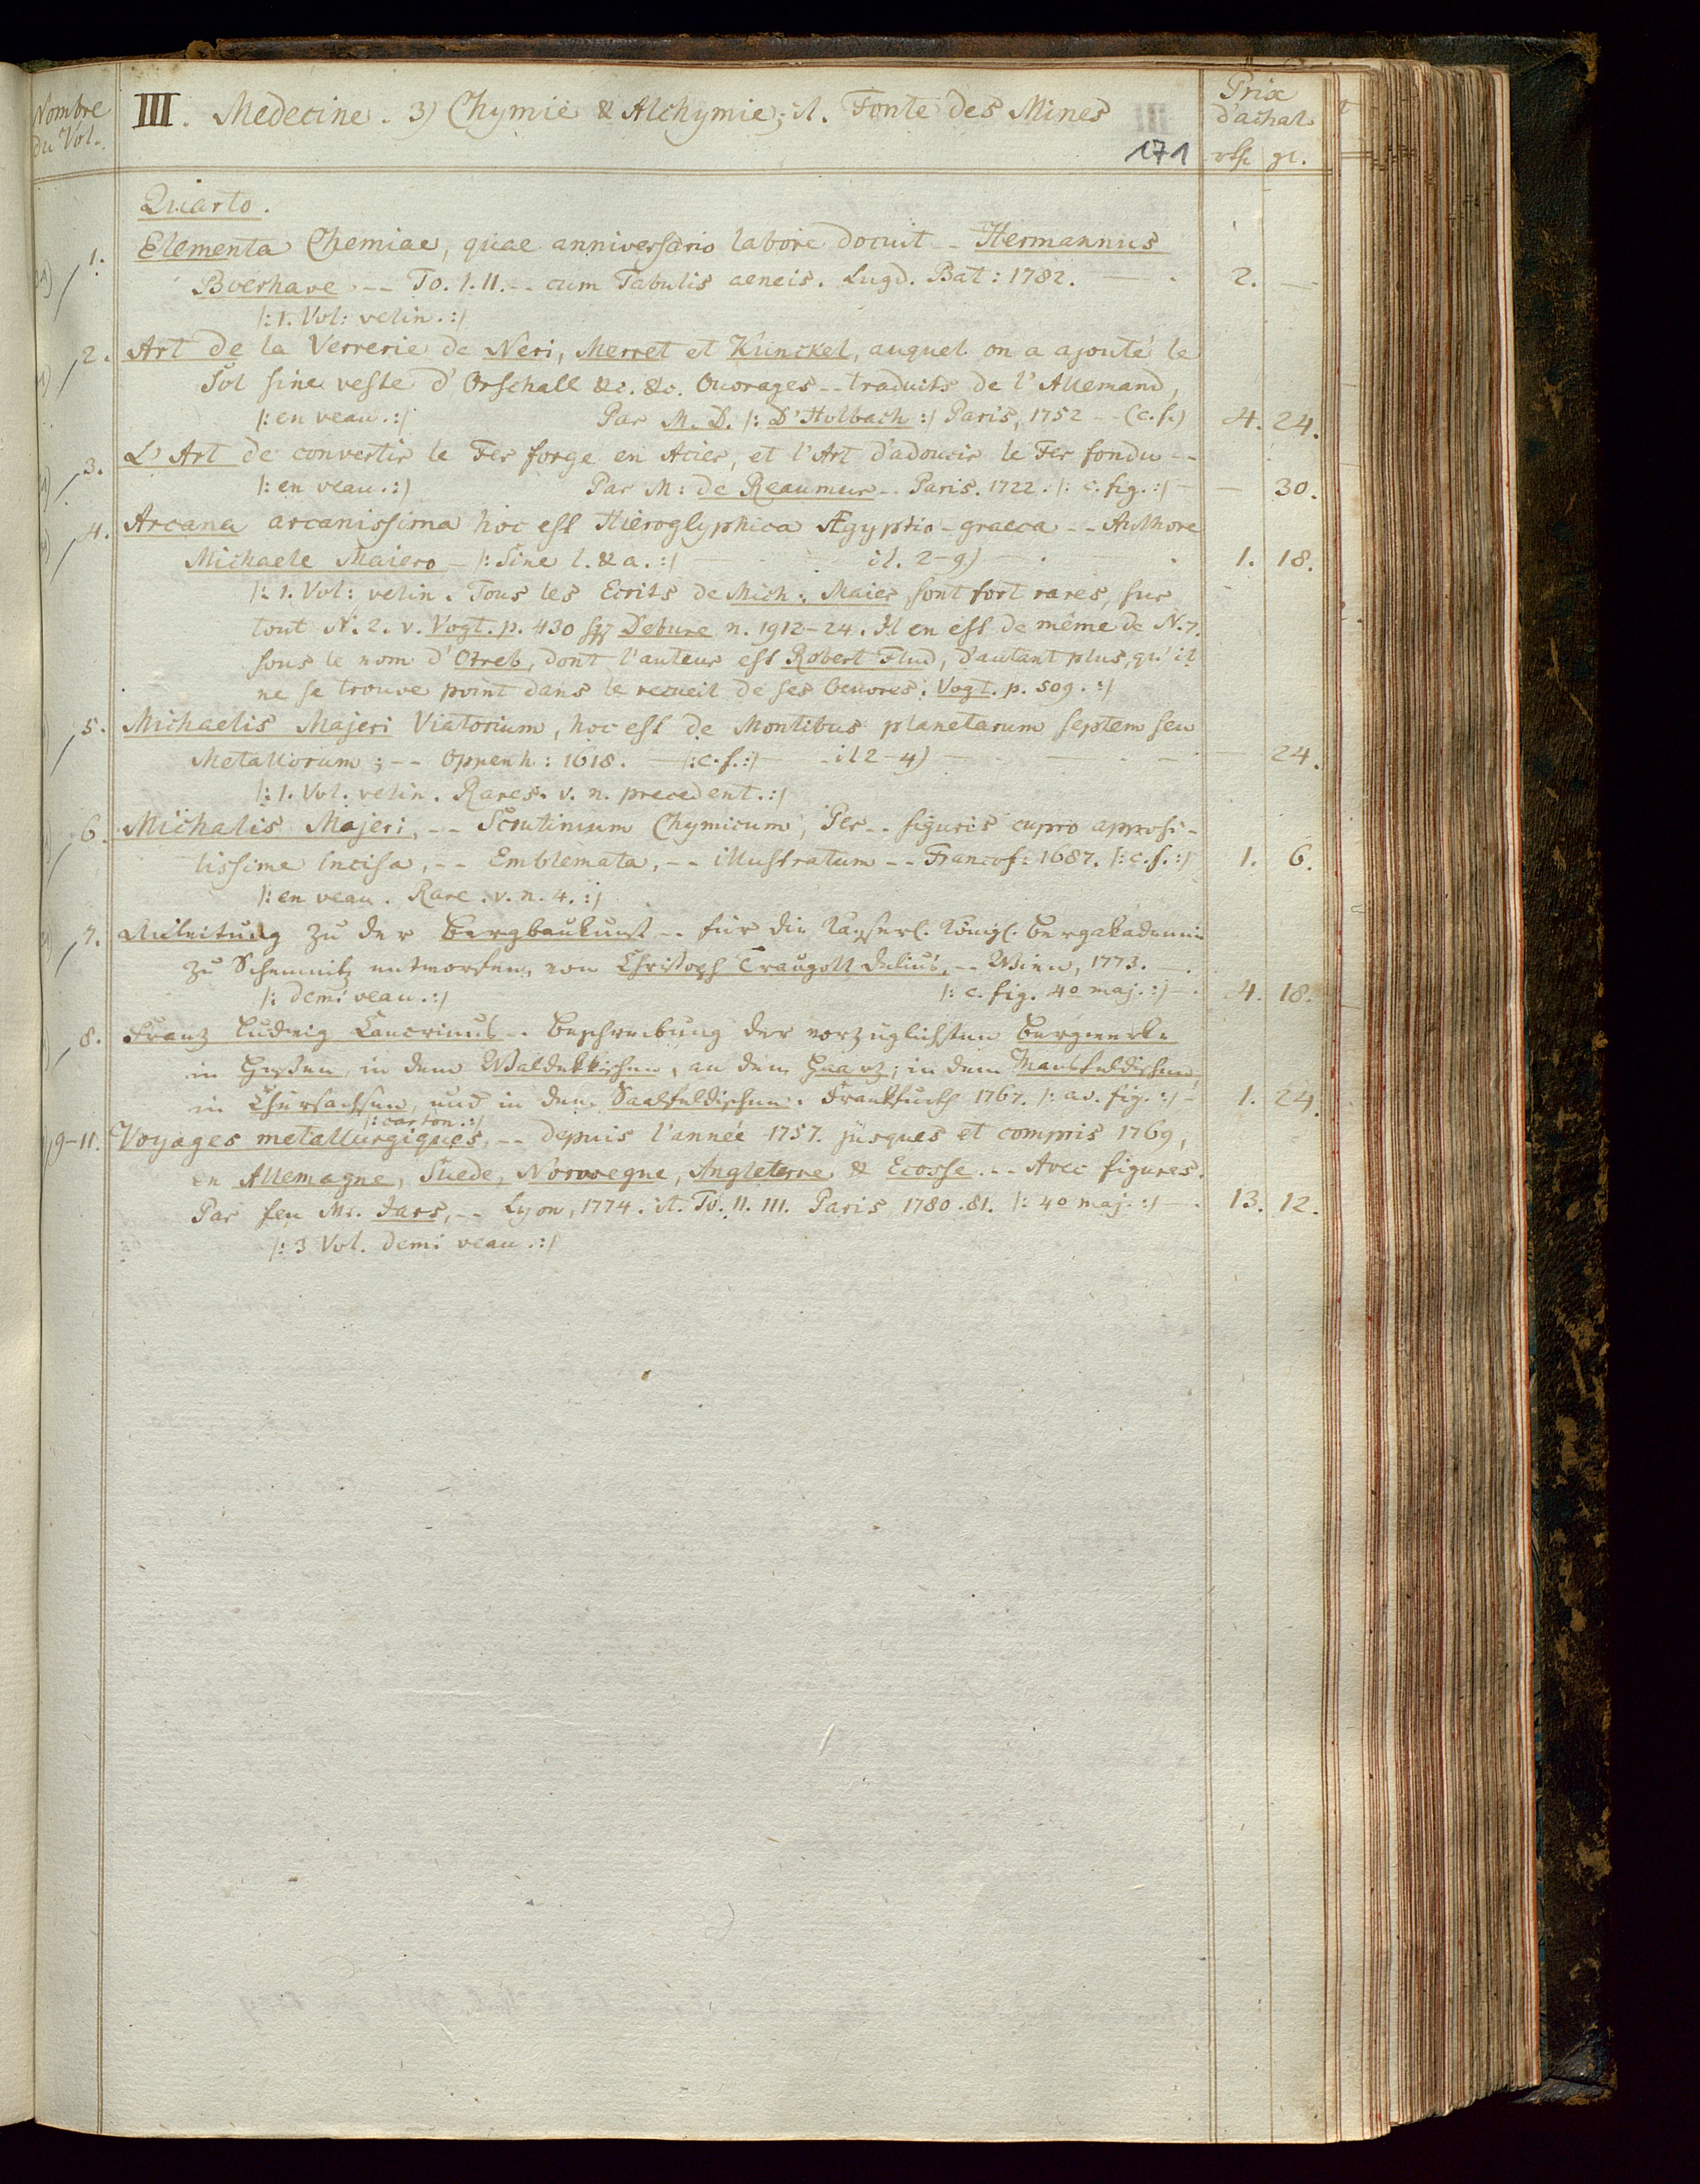 Nombre
du Vol.
III. Medecine. 3) Chymie & Alchymie; it. Fonte des Mines
171
Prix
d'achat
rth. gr.
Quarto.
1. Elementa Chemiae, quae anniversario labore docuit -- Hermannus
Boerhave -- To. I. II. -- cum Tabulis aeneis. Lugd. Bat: 1782. — 2. —
|: 1. Vol: velin. :|
2. Art de la Verrerie de Neri, Merret et Kunckel, auquel on a ajouté le
Sol sine veste d'Orschall &c. &c. Ouvrages -- traduits de l'Allemand,
|: en veau. :| Par M. D. |: D'Holbach :| Paris, 1752 -- (c. f.) 4. 24.
3. L'Art de convertir le Fer forge en Acier, et l'Art d'adoucir le Fer fondu --
|: en veau. :| Par M: de Reaumur -- Paris. 1722. |: c. fig. :| — — 30.
4. Arcana arcanissima hoc est Hieroglyphica Ægyptio-graeca -- Authore
Michaele Maiero — |: Sine l. & a. :| — it. 2-9) — 1. 18.
|: 1. Vol: velin. Tous les Ecrits de Mich: Maier sont fort rares, sur
tout N. 2. v. Vogt. p. 430 sqq Debure n. 1912-24. Il en est de même de N. 7.
sous le nom d'Otreb, dont l'auteur est Robert Flud, d'autant plus, qu'il
ne se trouve point dans le recueil de ses Oeuvres. Vogt. p. 509. :|
5. Michaelis Majeri Viatorium, hoc est de Montibus planetarum septem seu
Metallorum; -- Oppenh: 1618. — |: c. f. :| — it 2-4) — — 24.
|: 1. Vol. velin. Rares. v. n. precedent. :|
6. Michalis Majeri, -- Scrutinium Chymicum, Per -- figuris cupro apposi-
tissime incisa, -- Emblemata, -- illustratum -- Francof: 1687. |: c. f. :| 1. 6.
|: en veau. Rare. v. n. 4. :|
7. Anleitung zu der Bergbaukunst -- für die Kayserl. Königl. Bergakademie
zu Schemnitz entworfen, von Christoph Traugott Delius, -- Wien, 1773. —
|: demi veau. :| |: c. fig. 4o maj. :| — 4. 18.
8. Franz Ludwig Cancrinus -- Beschreibung der vorzüglichsten Bergwerke
in Hessen, in dem Waldekkischen, an dem Haarz, in dem Mansfeldischen,
in Chursachsen, und in dem Saalfeldischen. Frankfurth 1767. |: av. fig. :| — 1. 24.
|: carton. :|
9-11. Voyages metallurgiques, -- depuis l'année 1757. jusques et compris 1769,
en Allemagne, Suede, Norwegne, Angleterre & Ecosse. -- Avec figures.
Par feu Mr. Jars, -- Lyon, 1774. it. To. II. III. Paris 1780. 81. |: 4o maj. :| — 13. 12.
|: 3 Vol. demi veau. :|